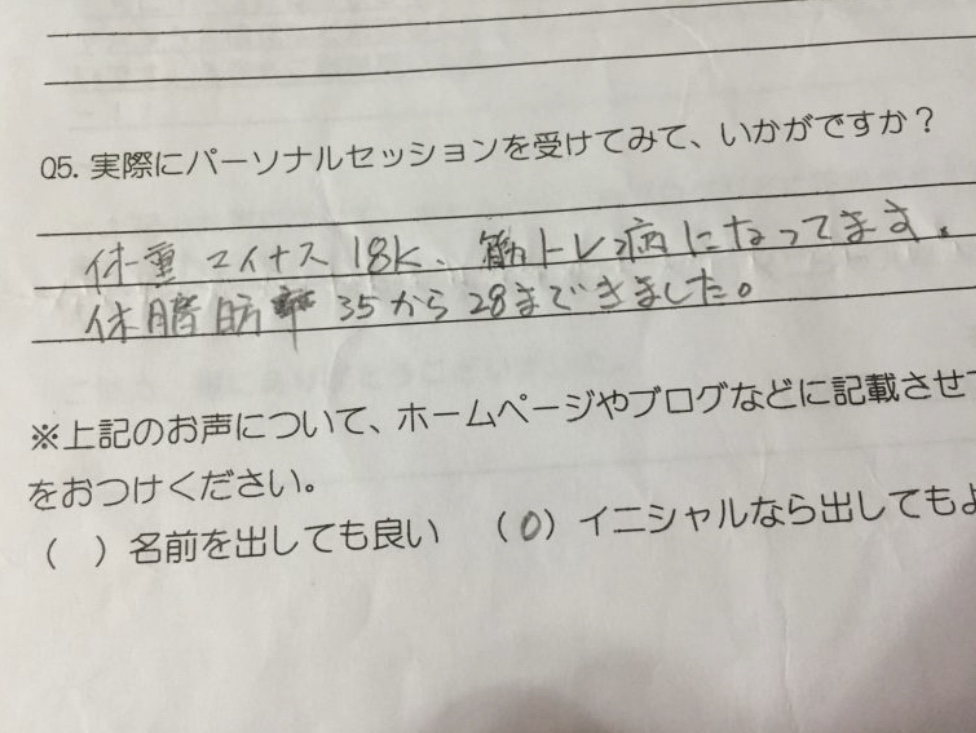 Q5. 実際にパーソナルセッションを受けてみて、いかがですか？
体重マイナス18K、筋トレ病になってます。
体脂肪率35から28まできました。
※上記のお声について、ホームページやブログなどに記載させて
をおつけください。
（ ）名前を出しても良い （O）イニシャルなら出してもよ